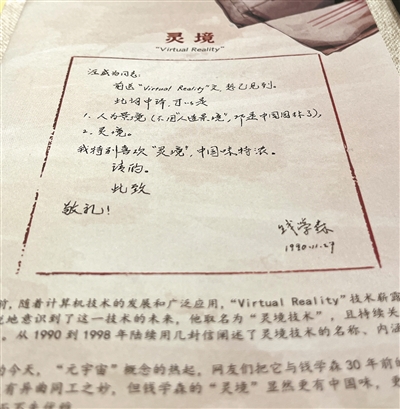 灵境
"Virtual Reality"
汪成为同志:
前送"Virtual Reality"文,想已见到。
此词中译,可以是:
1. 人为景境(不用"人造景境",那是中国园林了),
2. 灵境。
我特别喜欢"灵境",中国味特浓。
请酌。
此致
敬礼!
钱学森
1990.11.27
前,随着计算机技术的发展和广泛应用,"Virtual Reality"技术崭露
锐地意识到了这一技术的未来,他取名为"灵境技术",且持续关
。从 1990 到 1998 年陆续用几封信阐述了灵境技术的名称、内涵
的今天,"元宇宙"概念的热起,网友们把它与钱学森 30 年前的
有异曲同工之妙,但钱学森的"灵境"显然更有中国味,更